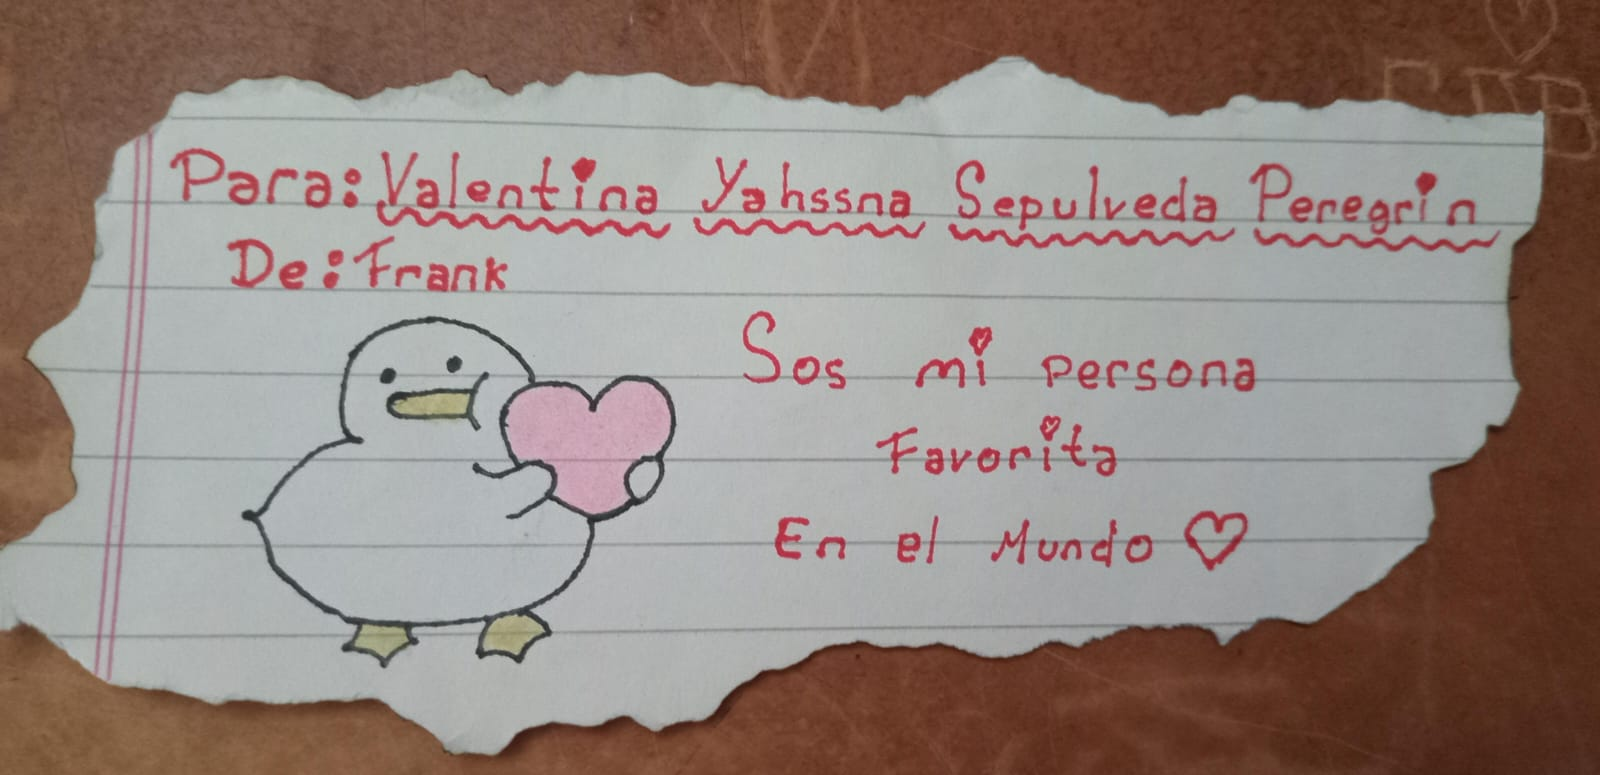 Para: Valentina Yahssna Sepulveda Peregrin
De: Frank
Sos mi persona
Favorita
En el Mundo ♡